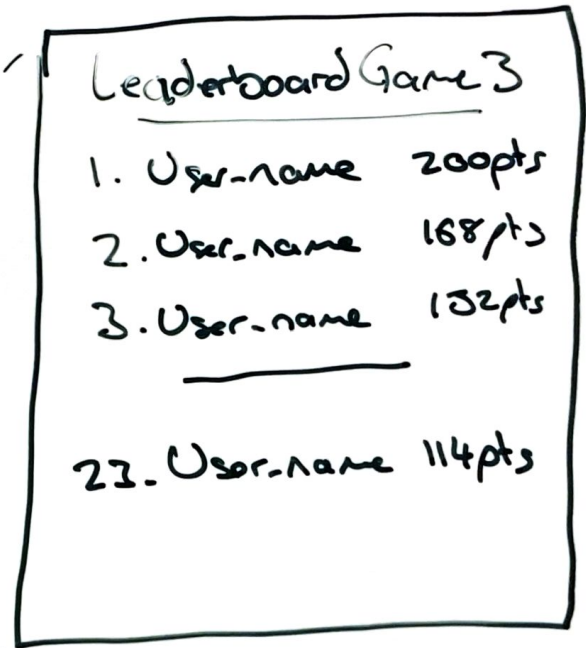 Leaderboard Game 3
1. User_name 200pts
2. User_name 168pts
3. User_name 132pts
23. User_name 114pts